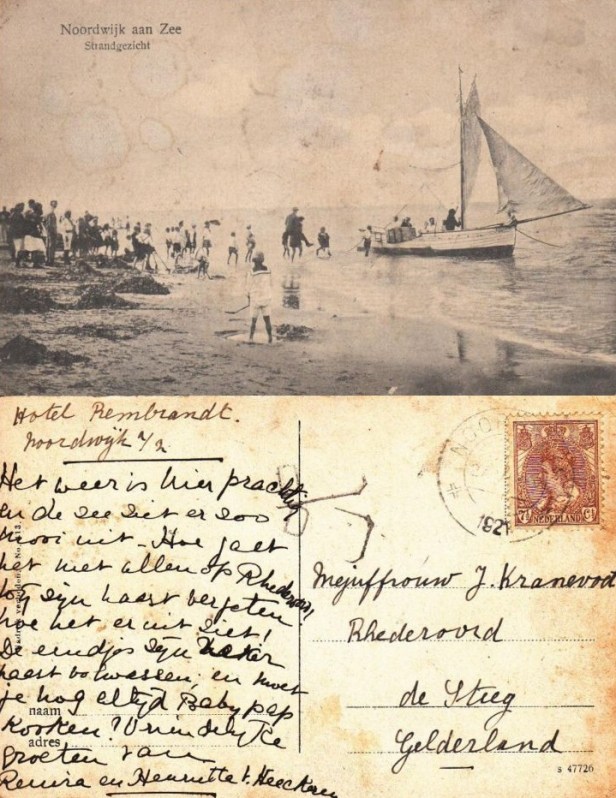 Noordwijk aan Zee
Strandgezicht
Hotel Rembrandt.
Noordwijk a/z
Het weer is hier prachtig
en de zee ziet er zoo
mooi uit. Hoe gaet
het met allen op Rhederoord
wij zijn haast vergeten
hoe het er uit ziet!
De eendjes zijn zeker
haast volwassen en moet
je nog altijd Baby pap
kooken? Vriendelijke
groeten van
en Henriette v. Heeckeren
naam
adres
1921
7½ Ct
NEDERLAND
Mejuffrouw J. Kranevoort
Rhederoord
de Steeg
Gelderland
s 47726